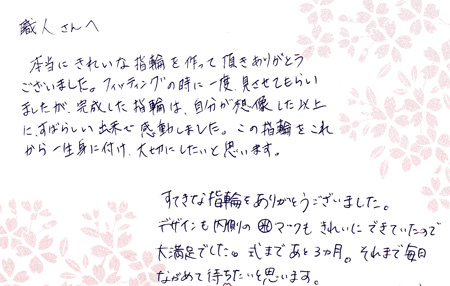 職人さんへ
本当にきれいな指輪を作って頂きありがとう
ございました。フィッティングの時に一度、見させてもらい
ましたが、完成した指輪は、自分が想像した以上
に、すばらしい出来で感動しました。この指輪をこれ
から一生身に付け、大切にしたいと思います。
すてきな指輪をありがとうございました。
デザインも内側のマークもきれいにできていたので
大満足でした。式まであと3ヵ月。それまで毎日
ながめて待ちたいと思います。